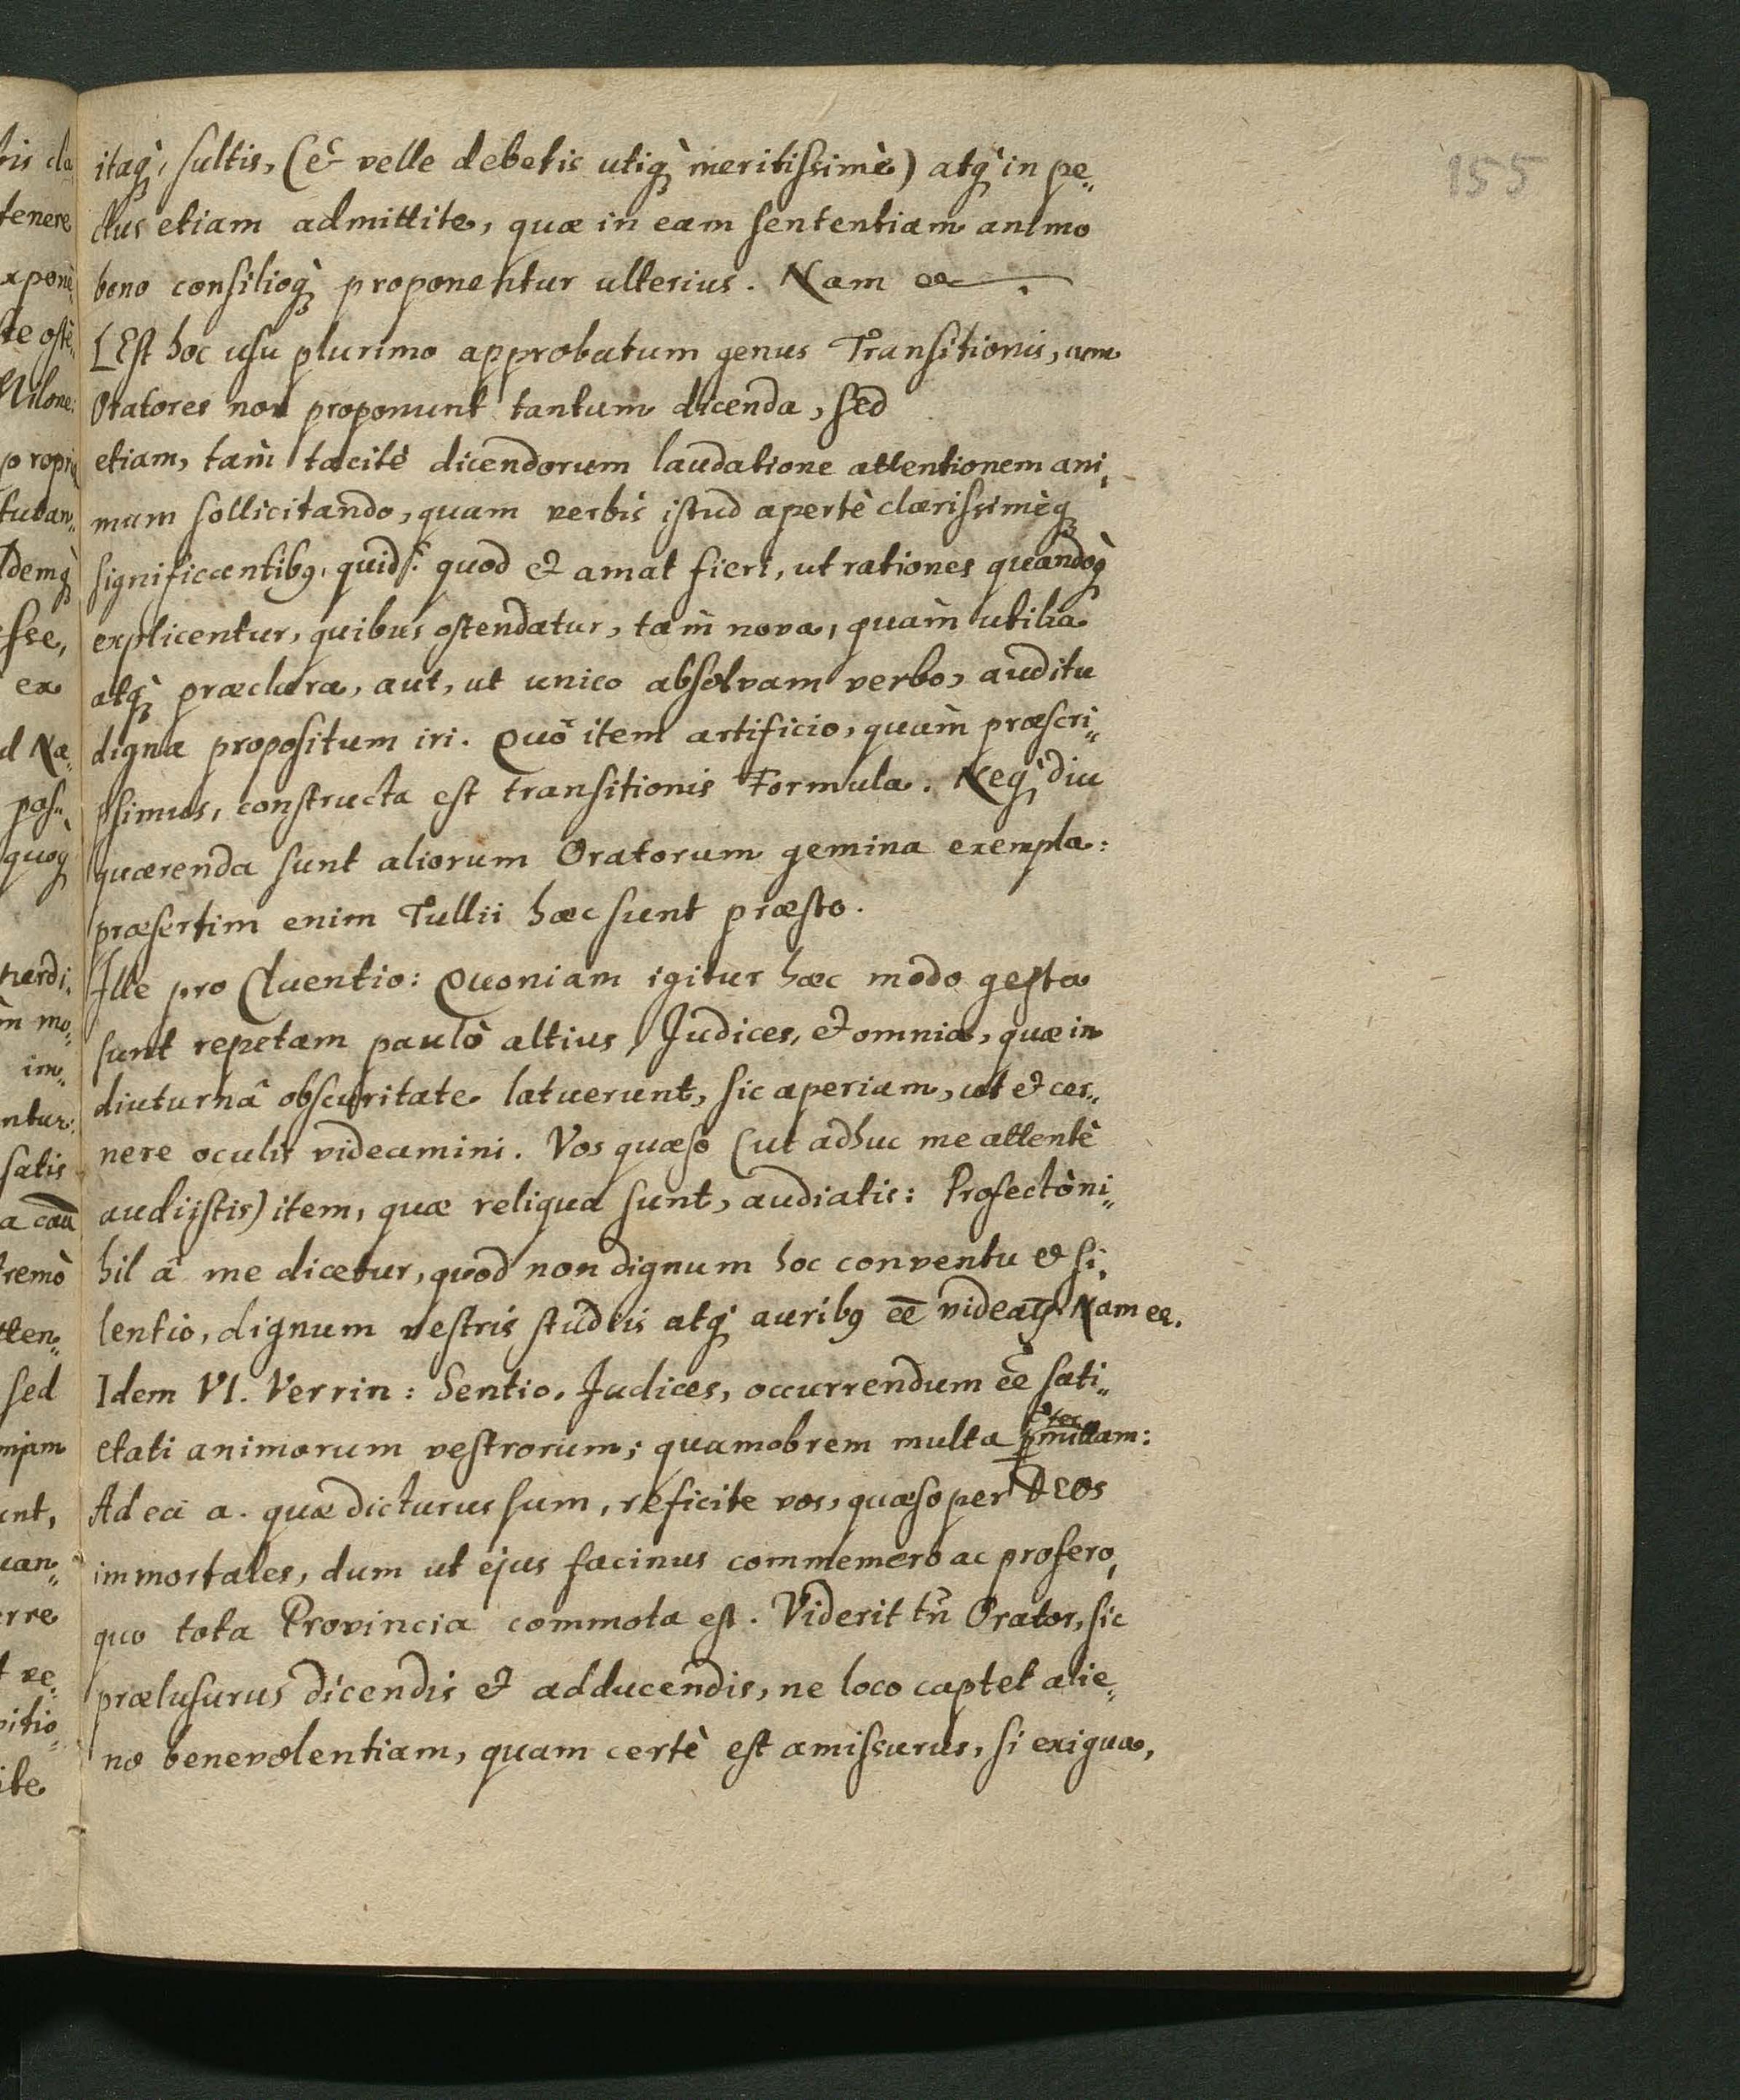 155
itaq́, sultis, (& velle debetis utiq́ meritissimè) atq́ in pe„
ctus etiam admittite, quæ in eam sententiam animo
bono consilioq́ proponentur ulterius. Nam
[Est hoc usu plurimo approbatum genus Transitionis, cum
Oratores non proponunt tantum dicenda, sed
etiam, tam̀ tacitè dicendorum laudatione attentionem ani„
mum sollicitando, quam verbis istud apertè clarissimèq́
significantibq. quid? quod & amat fieri, ut rationes quandoq́
explicentur, quibus ostendatur, tam̀ nova, quam̀ utilia
atq́ præclara, aut, ut unico absolvam verbo, auditu
digna propositum iri. Quô item artificio, quam̀ præscri„
psimus, constructa est transitionis Formula. Neq́ diu
quærenda sunt aliorum Oratorum gemina exempla:
præsertim enim Tullii hæc sunt præsto.
Ille pro Cluentio: Quoniam igitur hæc modo gesta
sunt repetam paulò altius, Judices, & omnia, quæ in
diuturnâ obscuritate latuerunt, sic aperiam, ut & cer„
nere oculis videamini. Vos quæso (ut adhuc me attentè
audijstis) item, quæ reliqua sunt, audiatis: Profectò ni„
hil â me dicetur, quod non dignum hoc conventu & si„
lentio, dignum vestris studiis atq́ auribq ee̅ videatr. Nam
Idem VI. Verrin: Sentio, Judices, occurrendum ee̅ sati„
etati animorum vestrorum; quamobrem multa p̱mittam:
Ad ea a. quæ dicturus sum, reficite vos, quæso per DEOS
immortales, dum ut ejus facinus commemoro ac profero,
quo tota Provincia commota est. Viderit tn̅ Orator, sic
prælusurus dicendis & adducendis, ne loco captet alie„
no benevolentiam, quam certè est amissurus, si exigua,